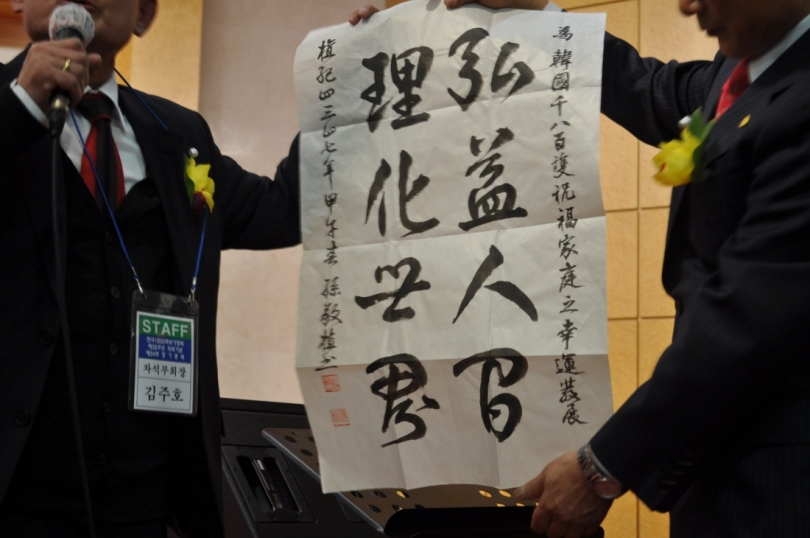 為韓國千八百雙祝福家庭之幸運發展
弘益人間
理化世界
檀紀四三四七年甲午春 孫敬植
STAFF
차석부회장
김주호